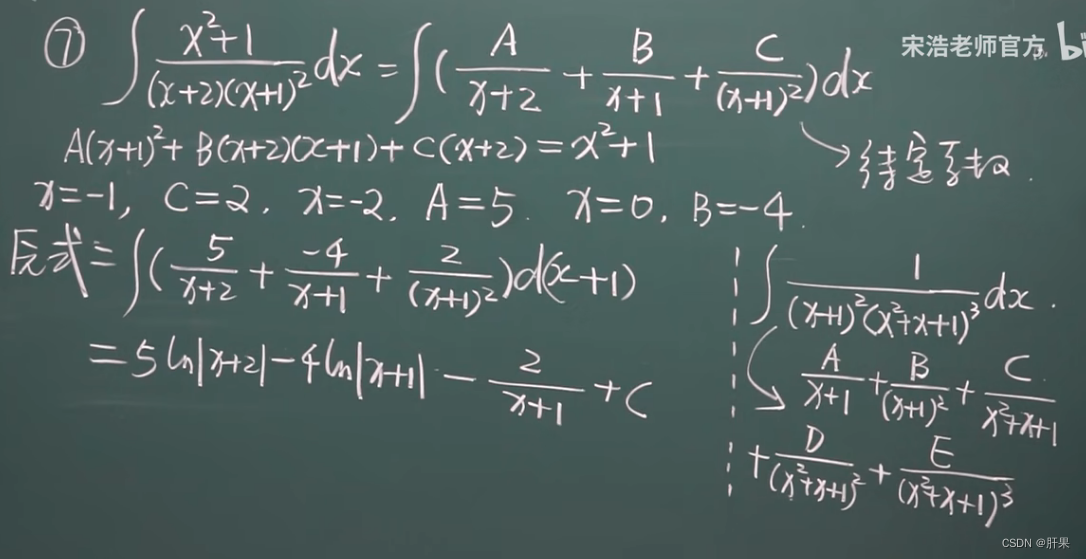 ⑦ ∫ x²+1 / (x+2)(x+1)² dx = ∫( A/(x+2) + B/(x+1) + C/(x+1)² )dx
宋浩老师官方 bi
A(x+1)²+B(x+2)(x+1)+C(x+2)=x²+1
待定系数.
x=-1, C=2. x=-2. A=5. x=0, B=-4.
原式=∫( 5/(x+2) + -4/(x+1) + 2/(x+1)² )d(x+1)
=5ln|x+2|-4ln|x+1| - 2/(x+1) +C
∫ 1/((x+1)²(x²+x+1)³) dx.
A/(x+1) + B/(x+1)² + C/(x²+x+1)
+ D/(x²+x+1)² + E/(x²+x+1)³
CSDN @肝果